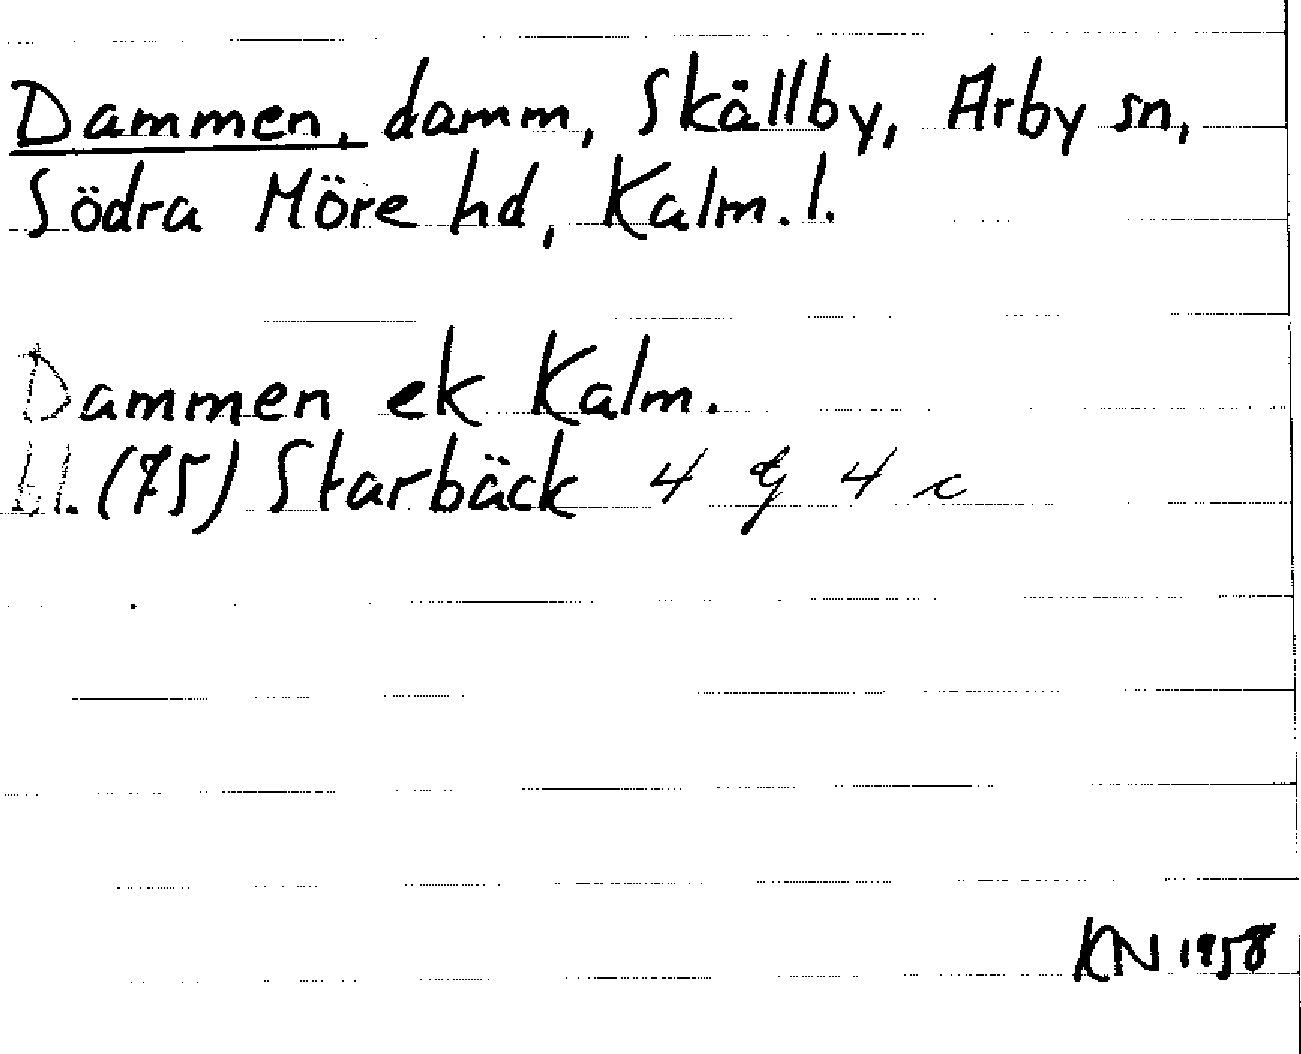 Dammen, damm, Skällby, Arby sn,
Södra Möre hd, Kalm. l.
Dammen ek Kalm.
bl. (75) Starbäck 4 g 4 c
KN 1958